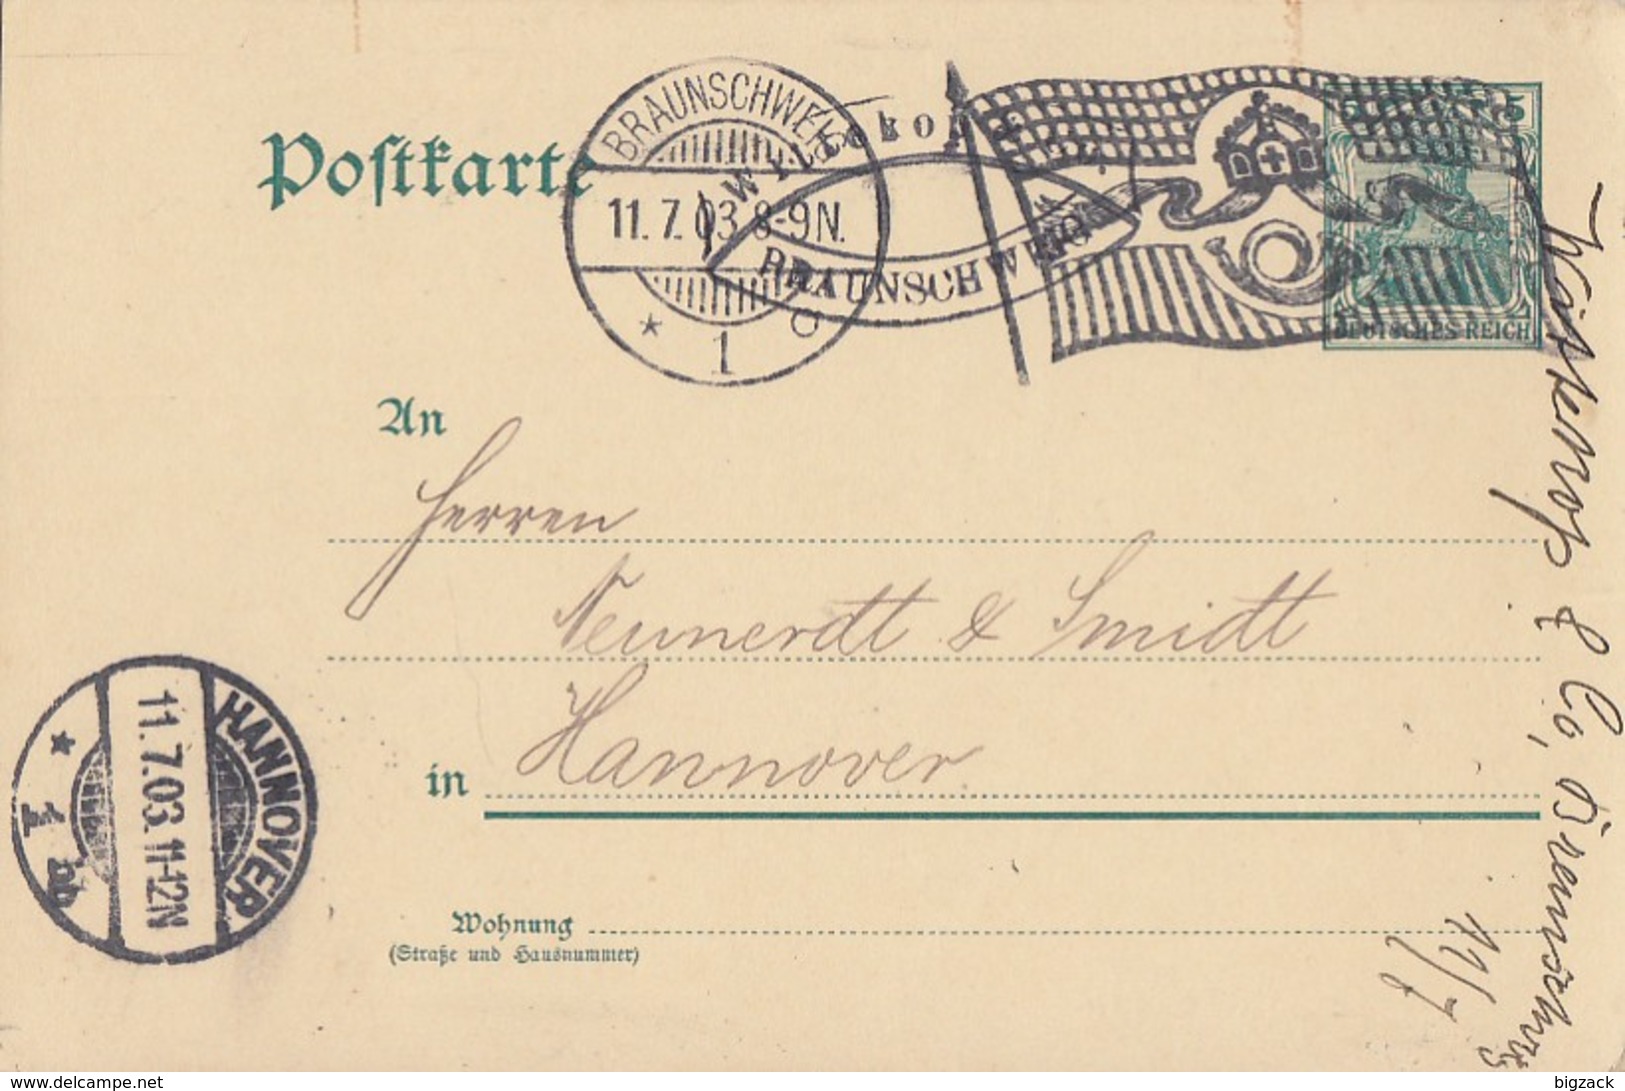 Postkarte
BRAUNSCHWEIG
11.7.03.8-9N.
* 1 c
BRAUNSCHWEIG
5 5
DEUTSCHES REICH
An
Herren
Neunerdt & Smidt
in Hannover
Wohnung
(Straße und Hausnummer)
HANNOVER
11.7.03.11-12N
* 1 bb
& Co, Braunschwg
11/7
www.delcampe.net
bigzack